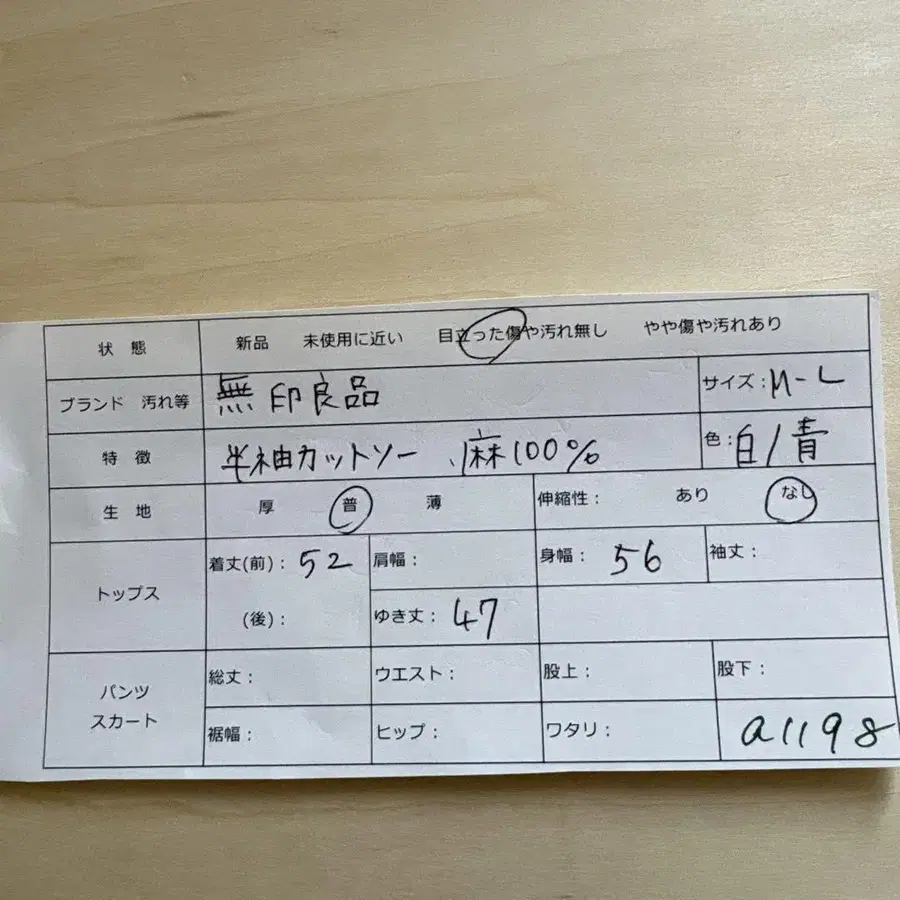 状 態 新品 未使用に近い 目立った傷や汚れ無し やや傷や汚れあり
ブランド 汚れ等 無印良品 サイズ:M-L
特 徴 半袖カットソー 麻100% 色:白/青
生 地 厚 普 薄 伸縮性: あり なし
トップス 着丈(前): 52 肩幅: 身幅: 56 袖丈:
(後): ゆき丈: 47
パンツ スカート 総丈: ウエスト: 股上: 股下:
裾幅: ヒップ: ワタリ: a1198